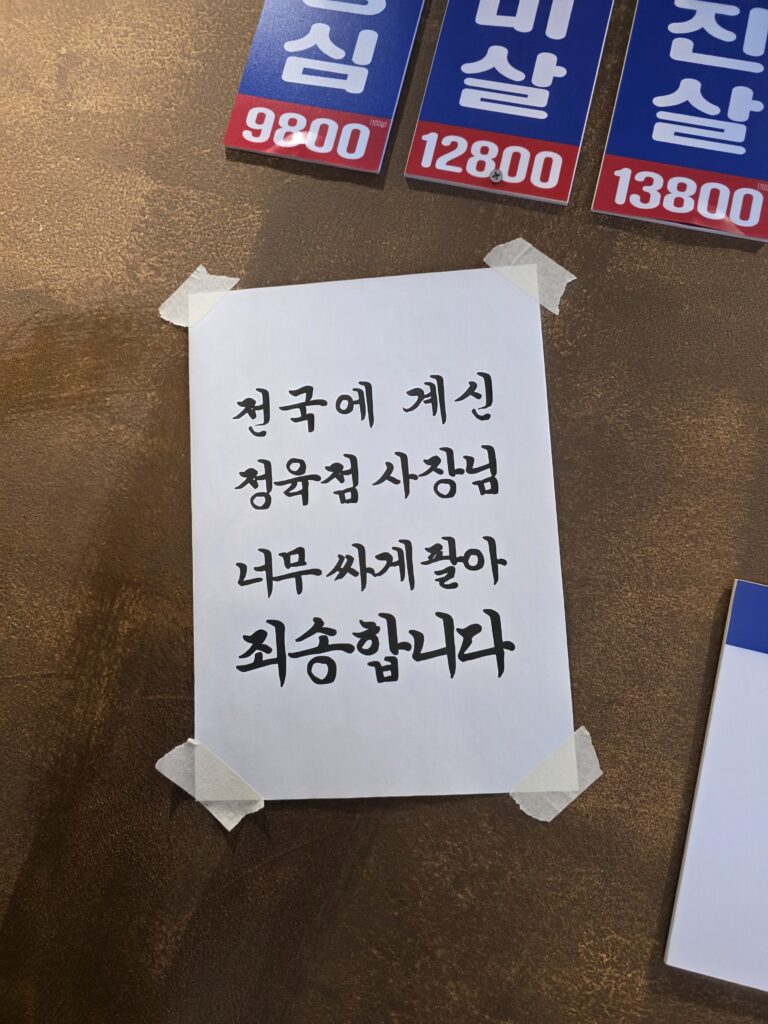 심
9800
(100g)
살
12800
진
살
13800
전국에 계신
정육점 사장님
너무 싸게 팔아
죄송합니다